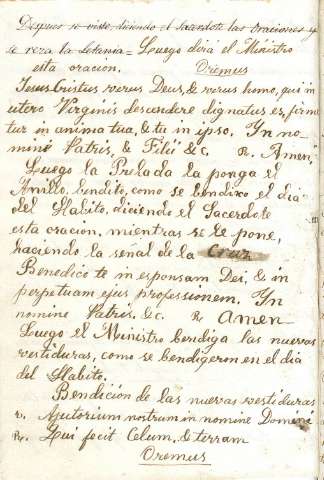 Despues se viste, diciendo el Sacerdote las oraciones y
se reza la Letania = Luego dira el Ministro
esta oracion. Oremus
Jesus Cristus verus Deus, & verus homo, qui in
utero Virginis descendere dignatus es, firme
tur in anima tua, & tu in ipso. In no
mine Patris, & Filii & c. R. Amen,
Luego la Prelada la ponga el
Anillo, bendito, como se bendixo el dia
del Habito, diciendo el Sacerdote
esta oracion, mientras se le pone,
haciendo la señal de la Cruz
Benedico te in esponsam Dei, & in
perpetuam ejus professionem. In
nomine Patris, &c. R. Amen
Luego el Ministro bendiga las nuevas
vestiduras, como se bendigeron en el dia
del Habito.
Bendición de las nuevas vestiduras
v. Ajutorium nostrum in nomine Domini
R. Qui fecit Celum, & terram
Oremus